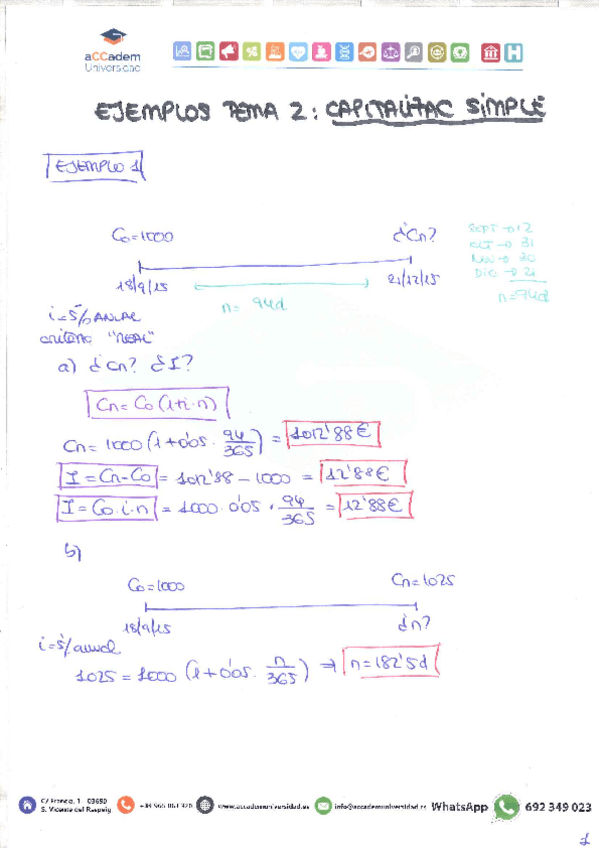 aCCadem
Universidad
EJEMPLOS TEMA 2: CAPITALITZAC SIMPLE
EJEMPLO 1
C₀=1000
¿Cn?
SEPT → 12
OCT → 31
NOV → 30
DIC → 21
n=94d
18/9/15
21/12/15
n= 94d
i=5% ANUAL
criterio "REAL"
a) ¿Cn? ¿I?
Cn= C₀(1+i·n)
Cn= 1000 (1+0'05· 94/365) = 1012'88€
I = Cn-C₀ = 1012'88 - 1000 = 12'88€
I = C₀·i·n = 1000·0'05 · 94/365 = 12'88€
b)
C₀=1000
Cn=1025
18/9/15
¿n?
i=5%anual
1025 = 1000 (1+0'05· n/365) ⇒ n=182'5d
C/ Franco, 1 - 03690
S. Vicente del Raspeig
www.accademuniversidad.es
info@accademuniversidad.es
WhatsApp
692 349 023
1